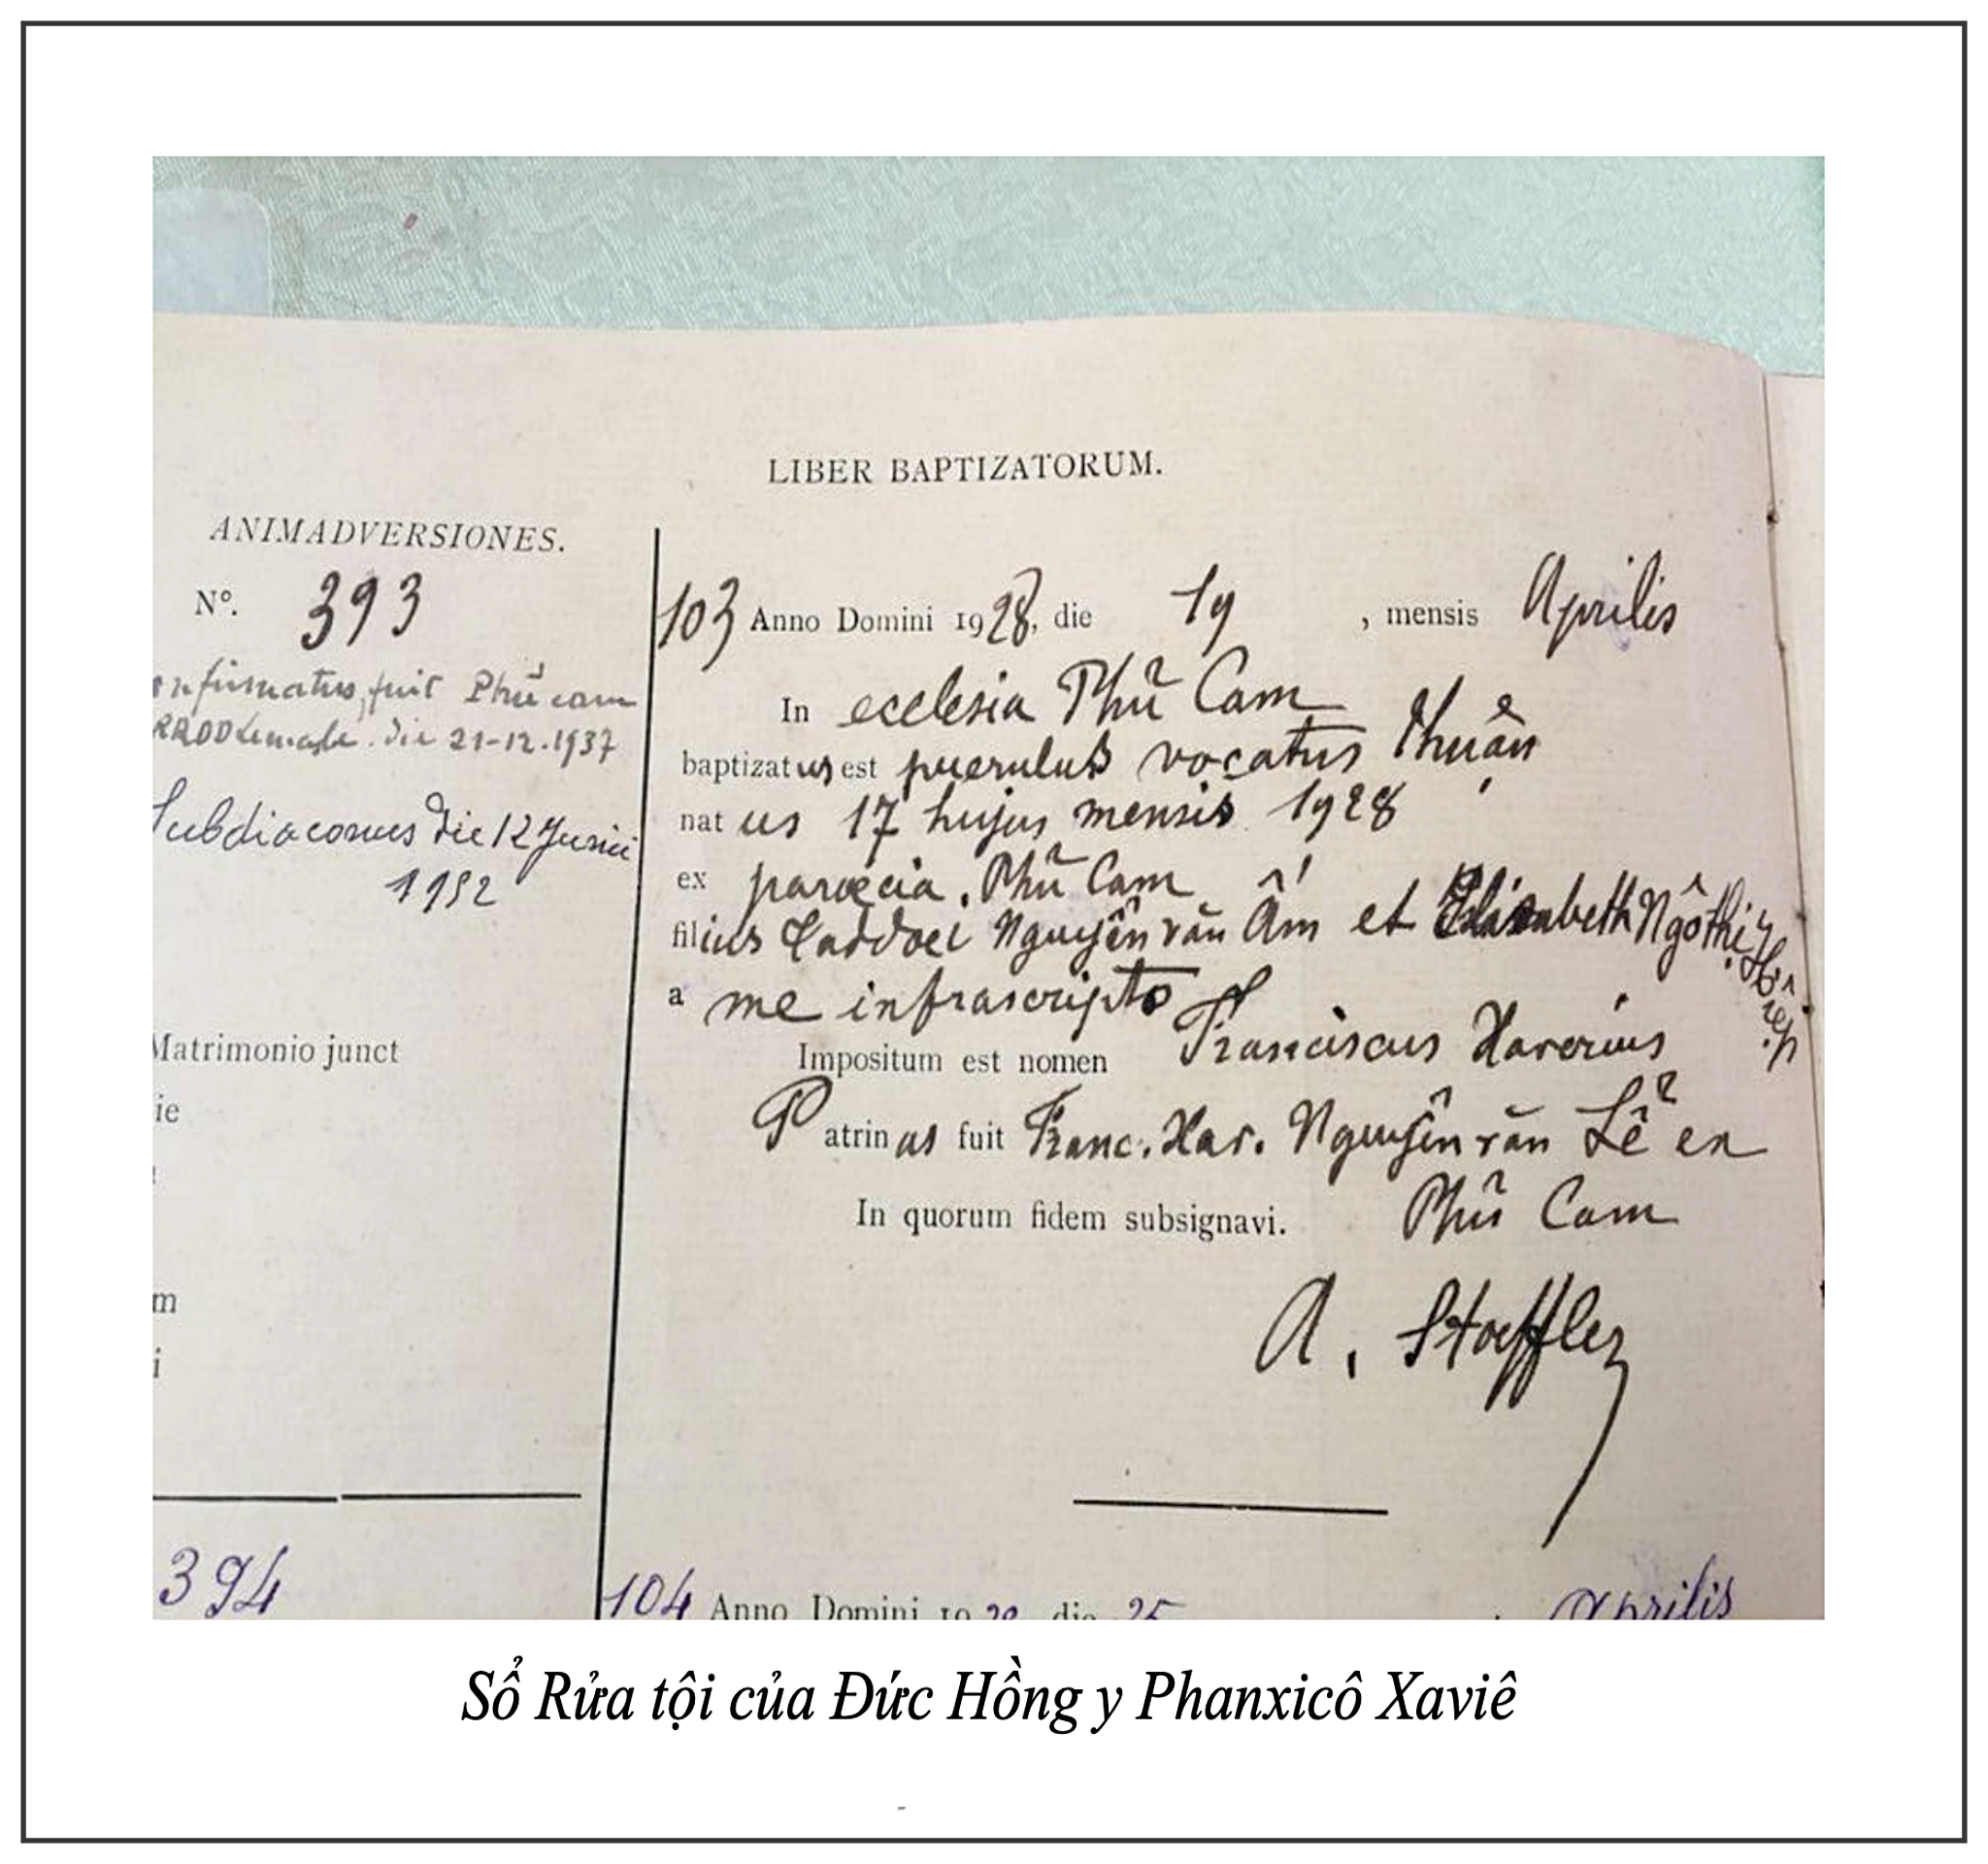 LIBER BAPTIZATORUM.
ANIMADVERSIONES.
Nº. 393
nfirmatus fuit Phủ cam
RRDD Lemasle. die 21-12.1937
Subdiaconus die 12 Junii
1952
Matrimonio junct
ie
m
i
394
103 Anno Domini 1928, die 19, mensis Aprilis
In ecclesia Phủ Cam
baptizatus est puerulus vocatus Thuận
natus 17 hujus mensis 1928
ex parœcia Phủ Cam
filius Taddoei Nguyễn văn Ấm et Elisabeth Ngô thị Hiệp
a me infrascripto
Impositum est nomen Franciscus Xaverius
Patrinus fuit Franc. Xav. Nguyễn văn Lễ ex
Phủ Cam
In quorum fidem subsignavi.
A. Stoeffler
104 Anno Domini 1928 die 25 Aprilis
Sổ Rửa tội của Đức Hồng y Phanxicô Xaviê